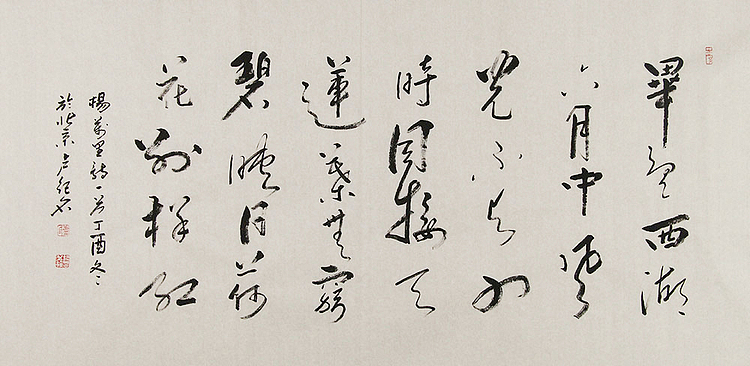 畢竟西湖
六月中風
光不與四
時同接天
蓮葉無窮
碧映日荷
花別樣紅
楊萬里詩一首丁酉冬
於北京